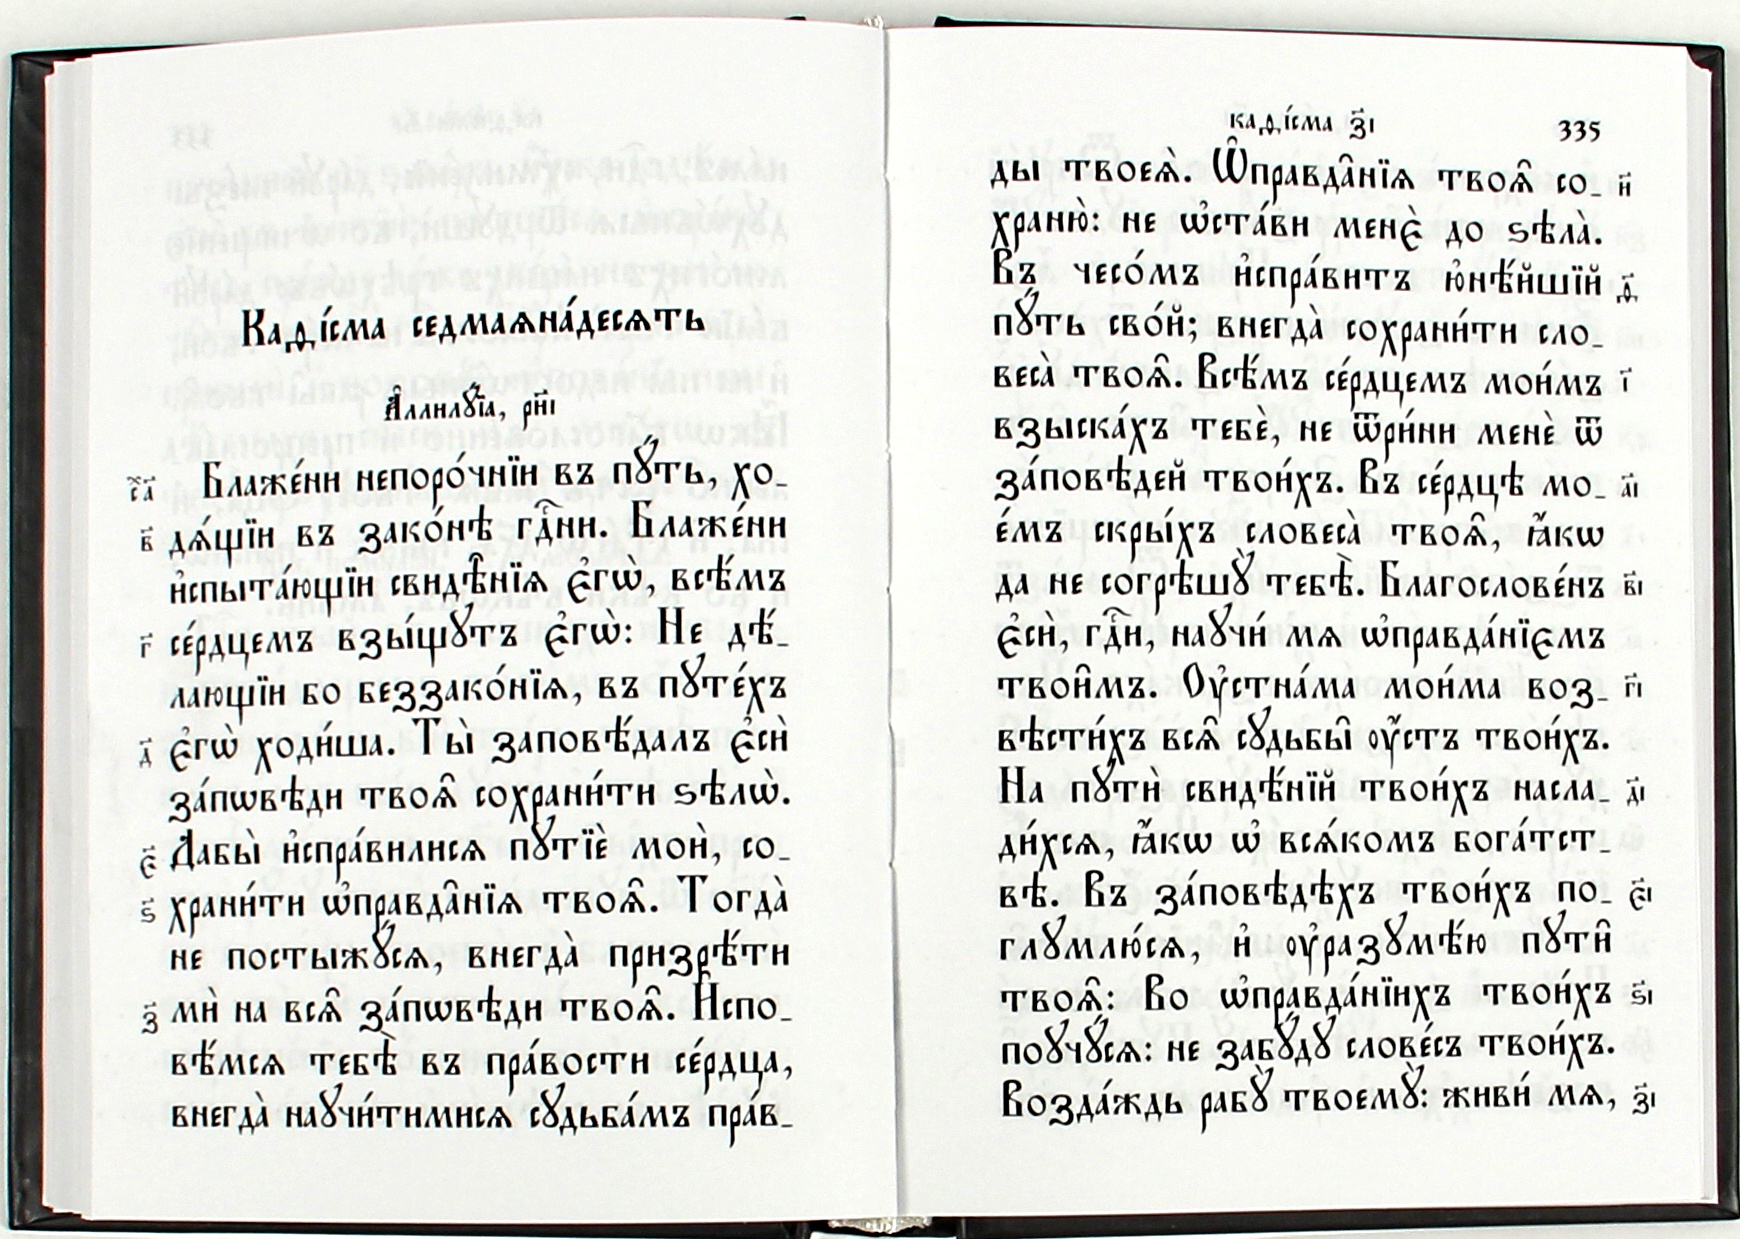 Каѳі́сма седмаѧна́десѧть
Ѧ҆ллилꙋ́їа, рн҃і
с҃а Блаже́ни непоро́чнїи въ пꙋ́ть, хо_
в҃ дѧ́щїи въ зако́нѣ гдⷭ҇ни. Блаже́ни
и҆спыта́ющїи свидѣ̑нїѧ є҆гѡ̀, всѣ́мъ
г҃ се́рдцемъ взы́щꙋтъ є҆гѡ̀: Не дѣ́_
лающїи бо беззако́нїѧ, въ пꙋте́хъ
д҃ є҆гѡ̀ ходи́ша. Ты̀ заповѣ́далъ є҆сѝ
за́пѡвѣди твоѧ̑ сохрани́ти ѕѣлѡ̀.
є҃ Дабы̀ и҆спра́вилисѧ пꙋтїѐ моѝ, со_
ѕ҃ храни́ти ѡ҆правда̑нїѧ твоѧ̑. Тогда̀
не постыжꙋ́сѧ, внегда̀ призрѣ́ти
з҃ мѝ на всѧ̑ за́пѡвѣди твоѧ̑. Испо_
вѣ́мсѧ тебѣ̀ въ пра́вости се́рдца,
внегда̀ наꙋчи́тимисѧ сꙋдьба́мъ пра́в_
каѳі́сма з҃і 335
ды твоеѧ̀. Ѡ҆правда̑нїѧ твоѧ̑ со_ и҃
храню̀: не ѡ҆ста́ви менє̀ до ѕѣла̀.
Въ чесо́мъ и҆спра́витъ ю҆нѣ́йшїй ѳ҃
пꙋ́ть сво́й; внегда̀ сохрани́ти сло_
веса̀ твоѧ̑. Всѣ́мъ се́рдцемъ мои́мъ і҃
взыска́хъ тебѐ, не ѿри́ни менѐ ѿ
за́повѣдей твои́хъ. Въ се́рдцѣ мо_ а҃і
е́мъ скры́хъ словеса̀ твоѧ̑, ꙗ҆́кѡ
да не согрѣшꙋ̀ тебѣ̀. Благослове́нъ в҃і
є҆сѝ, гдⷭ҇и, наꙋчи́ мѧ ѡ҆правда́нїємъ
твои̑мъ. Оу҆стна́ма мои́ма воз_ г҃і
вѣсти́хъ всѧ̑ сꙋдьбы̑ оу҆́стъ твои́хъ.
На пꙋтѝ свидѣ́нїй твои́хъ насла_ д҃і
ди́хсѧ, ꙗ҆́кѡ ѡ҆ всѧ́комъ бога́тст_
вѣ. Въ за́повѣдѣхъ твои́хъ по_ є҃і
глꙋмлю́сѧ, и҆ оу҆разꙋмѣ́ю пꙋти̑
твоѧ̑: Во ѡ҆правда́нїихъ твои́хъ ѕ҃і
поꙋчꙋ́сѧ: не забꙋ́дꙋ слове́съ твои́хъ.
Возда́ждь рабꙋ̀ твоемꙋ̀: живи́ мѧ, з҃і